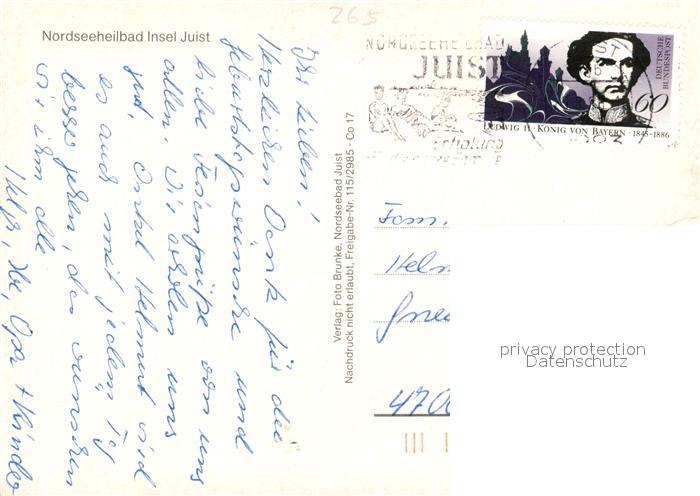 265
Nordseeheilbad Insel Juist
NORDSEEHEILBAD
JUIST
Erholung
DEUTSCHE
BUNDESPOST
60
LUDWIG II · KÖNIG VON BAYERN · 1845-1886
Ihr Lieben!
Herzlichen Dank für die
Geburtstagswünsche und
liebe Feriengrüße von uns
allen. Wir erholen uns
gut, Onkel Helmut wird
es auch mit jedem Tag
besser gehen, das wünschen
wir ihm alle
Helga, Ilse, Opa + Kinder
Verlag: Foto Brunke, Nordseebad Juist
Nachdruck nicht erlaubt, Freigabe-Nr. 115/2985 Co 17
Fam.
Helm
470
privacy protection
Datenschutz